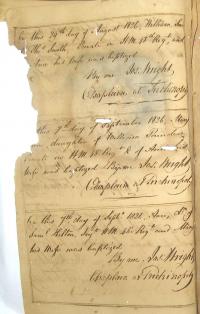 On this 29th day of August 1826, William, Son
Smith Private in H.M. 48th Regt. and
his Wife was baptized
By me Jas. Wright,
Chaplain at Trichinopoly
this 3d day of September 1826, Mary
daughter of William
Private in H.M. 48th Regt. & of Ann his
Wife was baptized By me Jas. Wright
Chaplain at Trichinopoly
On this 7th day of Septr. 1826, Ann, Dr. of
Saml. Hilton, Sergt. H.M. 48th Regt. and Mary
his Wife was baptized
By me Jas. Wright
Chaplain at Trichinopoly